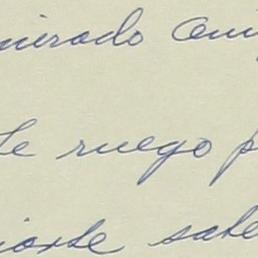 mirado ami
te ruego p
iarte sate